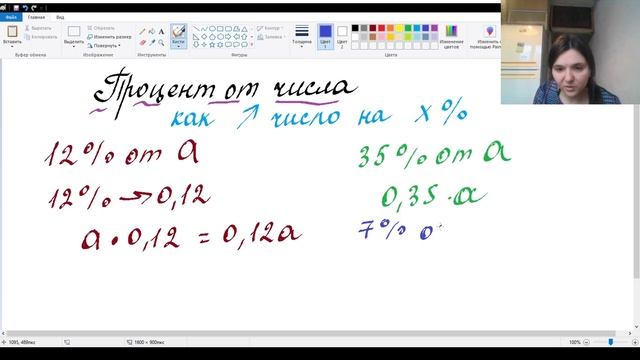 Файл Главная Вид
Вставить Выделить Вырезать Обрезать Изменить размер Повернуть Кисти Толщина Цвет 1 Цвет 2 Изменение цветов Изменить с помощью
Буфер обмена Изображение Инструменты Фигуры Цвета
Процент от числа
как ↗ число на x %
12% от a
35% от a
12% → 0,12
0,35 · a
a · 0,12 = 0,12a
7% о
1095, 489пкс
1600 × 900пкс
100%